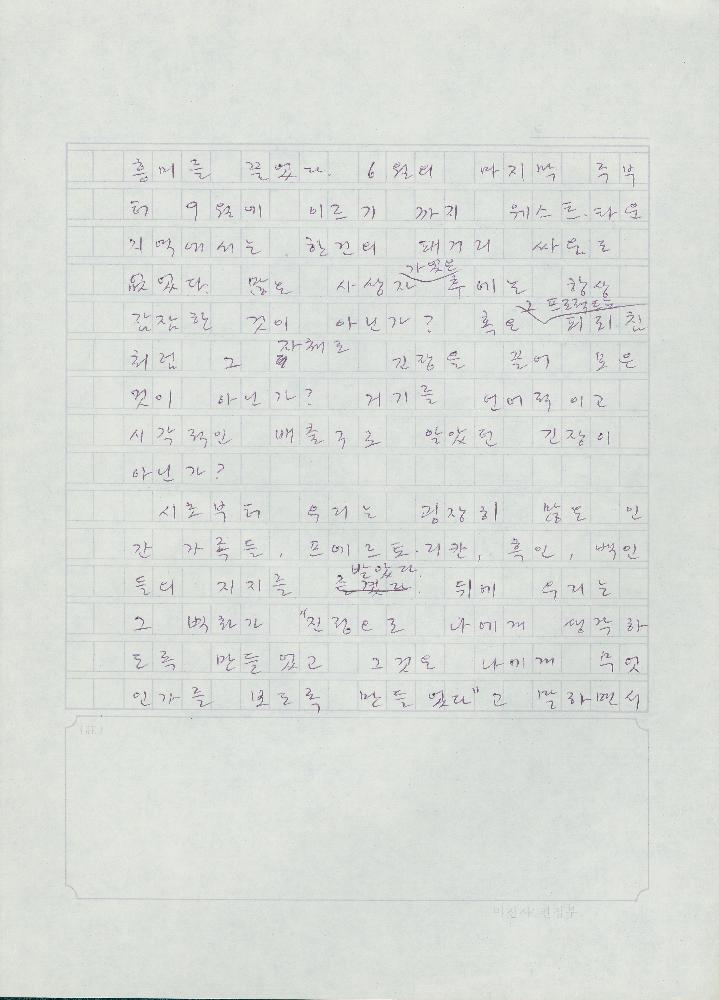 흥미를 끌었다. 6월의 마지막 주부
터 9월에 이르기 까지 웨스트·타운
지역에서는 한건의 패거리 싸움도
가벼운
없었다. 많은 사상자 후에는 항상
그 프로젝트는
잠잠한 것이 아닌가? 혹은 피뢰침
자체로
처럼 그 긴장을 끌어 모은
것이 아닌가? 거기를 언어적이고
시각적인 배출구로 알았던 긴장이
아닌가?
시초부터 우리는 굉장히 많은 인
간 가족들, 프에르토·리칸, 흑인, 백인
받았다.
들의 지지를 뒤에 우리는
그 벽화가 "진정으로 나에게 생각하
도록 만들었고 그것은 나에게 무엇
인가를 보도록 만들었다"고 말하면서
(註)
미진사 편집부